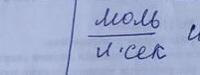 моль
л·сек и